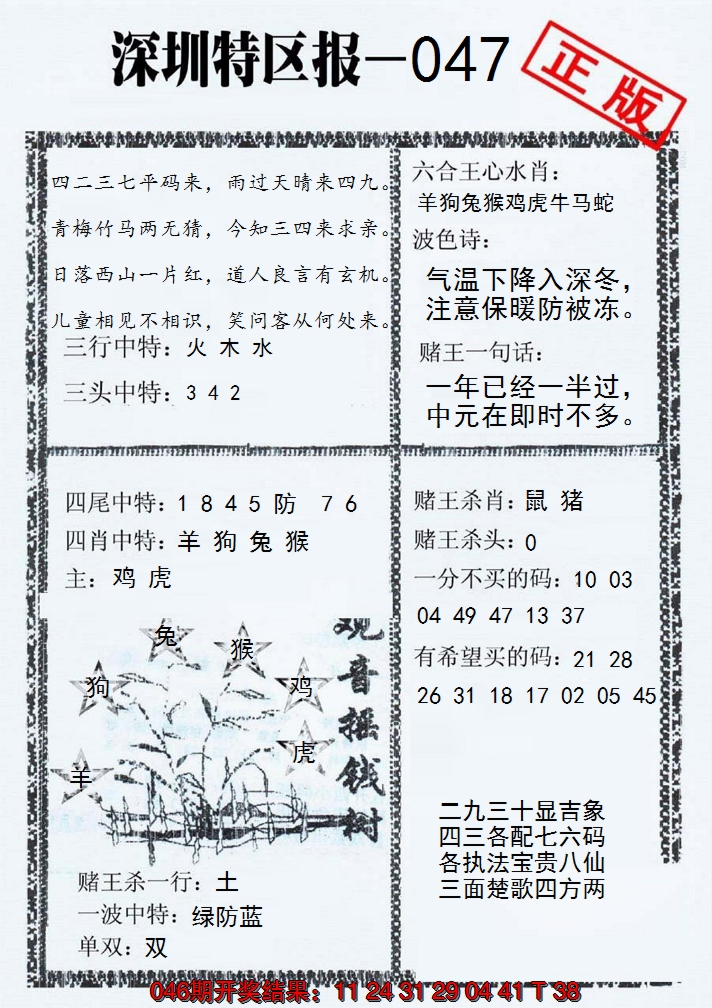 深圳特区报—047
正版
四二三七平码来，雨过天晴来四九。
青梅竹马两无猜，今知三四来求亲。
日落西山一片红，道人良言有玄机。
儿童相见不相识，笑问客从何处来。
三行中特：火 木 水
三头中特：3 4 2
六合王心水肖：
羊狗兔猴鸡虎牛马蛇
波色诗：
气温下降入深冬，
注意保暖防被冻。
赌王一句话：
一年已经一半过，
中元在即时不多。
四尾中特：1 8 4 5 防 7 6
四肖中特：羊 狗 兔 猴
主：鸡 虎
兔
猴
狗
鸡
虎
羊
观音摇钱树
赌王杀一行：土
一波中特：绿防蓝
单双：双
赌王杀肖：鼠 猪
赌王杀头：0
一分不买的码：10 03
04 49 47 13 37
有希望买的码：21 28
26 31 18 17 02 05 45
二九三十显吉象
四三各配七六码
各执法宝贵八仙
三面楚歌四方两
046期开奖结果：11 24 31 29 04 41 T 38